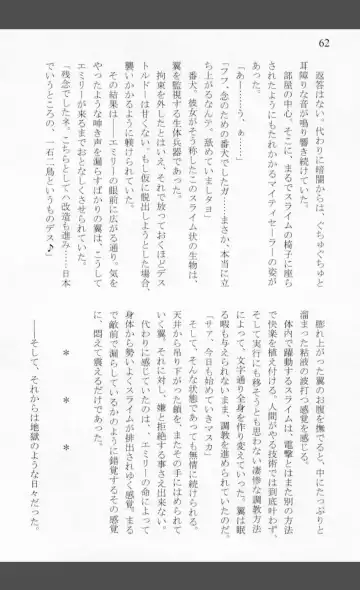 62
返答はない。代わりに暗闇からは、ぐちゅぐちゅと
耳障りな音が鳴り響き続けていた。
部屋の中心、そこに、まるでスライムの椅子に座ら
されたようにもたれかかるマイティセーラーの姿が
あった。
「あ……う、ぁ……」
「フフ、念のための番犬でしたガ……まさか、本当に立
ち上がるなんテ。舐めていましタョ」
番犬。彼女がそう称したこのスライム状の生物は、
翼を監視する生体兵器であった。
拘束を外したとはいえ、それで放っておくほどデス
トルドーは甘くない。もし仮に脱出しようとした場合、
襲いかかるように躾けられていた。
その結果は――エミリーの眼前に広がる通り。気を
やったような呻き声を漏らすばかりの翼は、こうして
エミリーが来るまでおとなしくさせられていた。
「残念でしたネ。こちらとしてハ改造も進み……日本
でいうところの、一石二鳥というものデス♪」
膨れ上がった翼のお腹を撫でると、中にたっぷりと
溜まった粘液の波打つ感覚を感じる。
体内で躍動するスライムは、電撃とはまた別の方法
で快楽を植え付ける。人間がやる技術では到底叶わず、
そして実行にも移そうとも思わない凄惨な調教方法
によって、文字通り全身を作り変えていた。翼は眠
る暇も与えられないまま、調教を進められていたのだ。
「サァ、今日も始めていきマスカ」
そして、そんな状態であっても無情に続けられる。
天井から吊り下がった鎖を、またその手にはめられて
いく翼。それに対し、嫌と拒絶する事さえ出来ない。
代わりに感じていたのは、エミリーの命によって
身体から勢いよくスライムが排出されゆく感覚。まる
で敵前で漏らしているかのように錯覚するその感覚
に、悶えて震えるだけであった。
＊　＊　＊
――そして、それからは地獄のような日々だった。